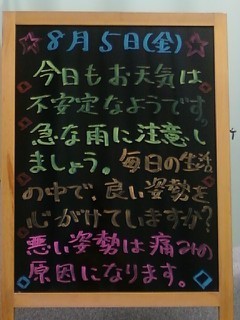 8月5日(金)
今日もお天気は
不安定なようです。
急な雨に注意し
ましょう。毎日の生活
の中で、良い姿勢を
心がけていますか?
悪い姿勢は痛みの
原因になります。